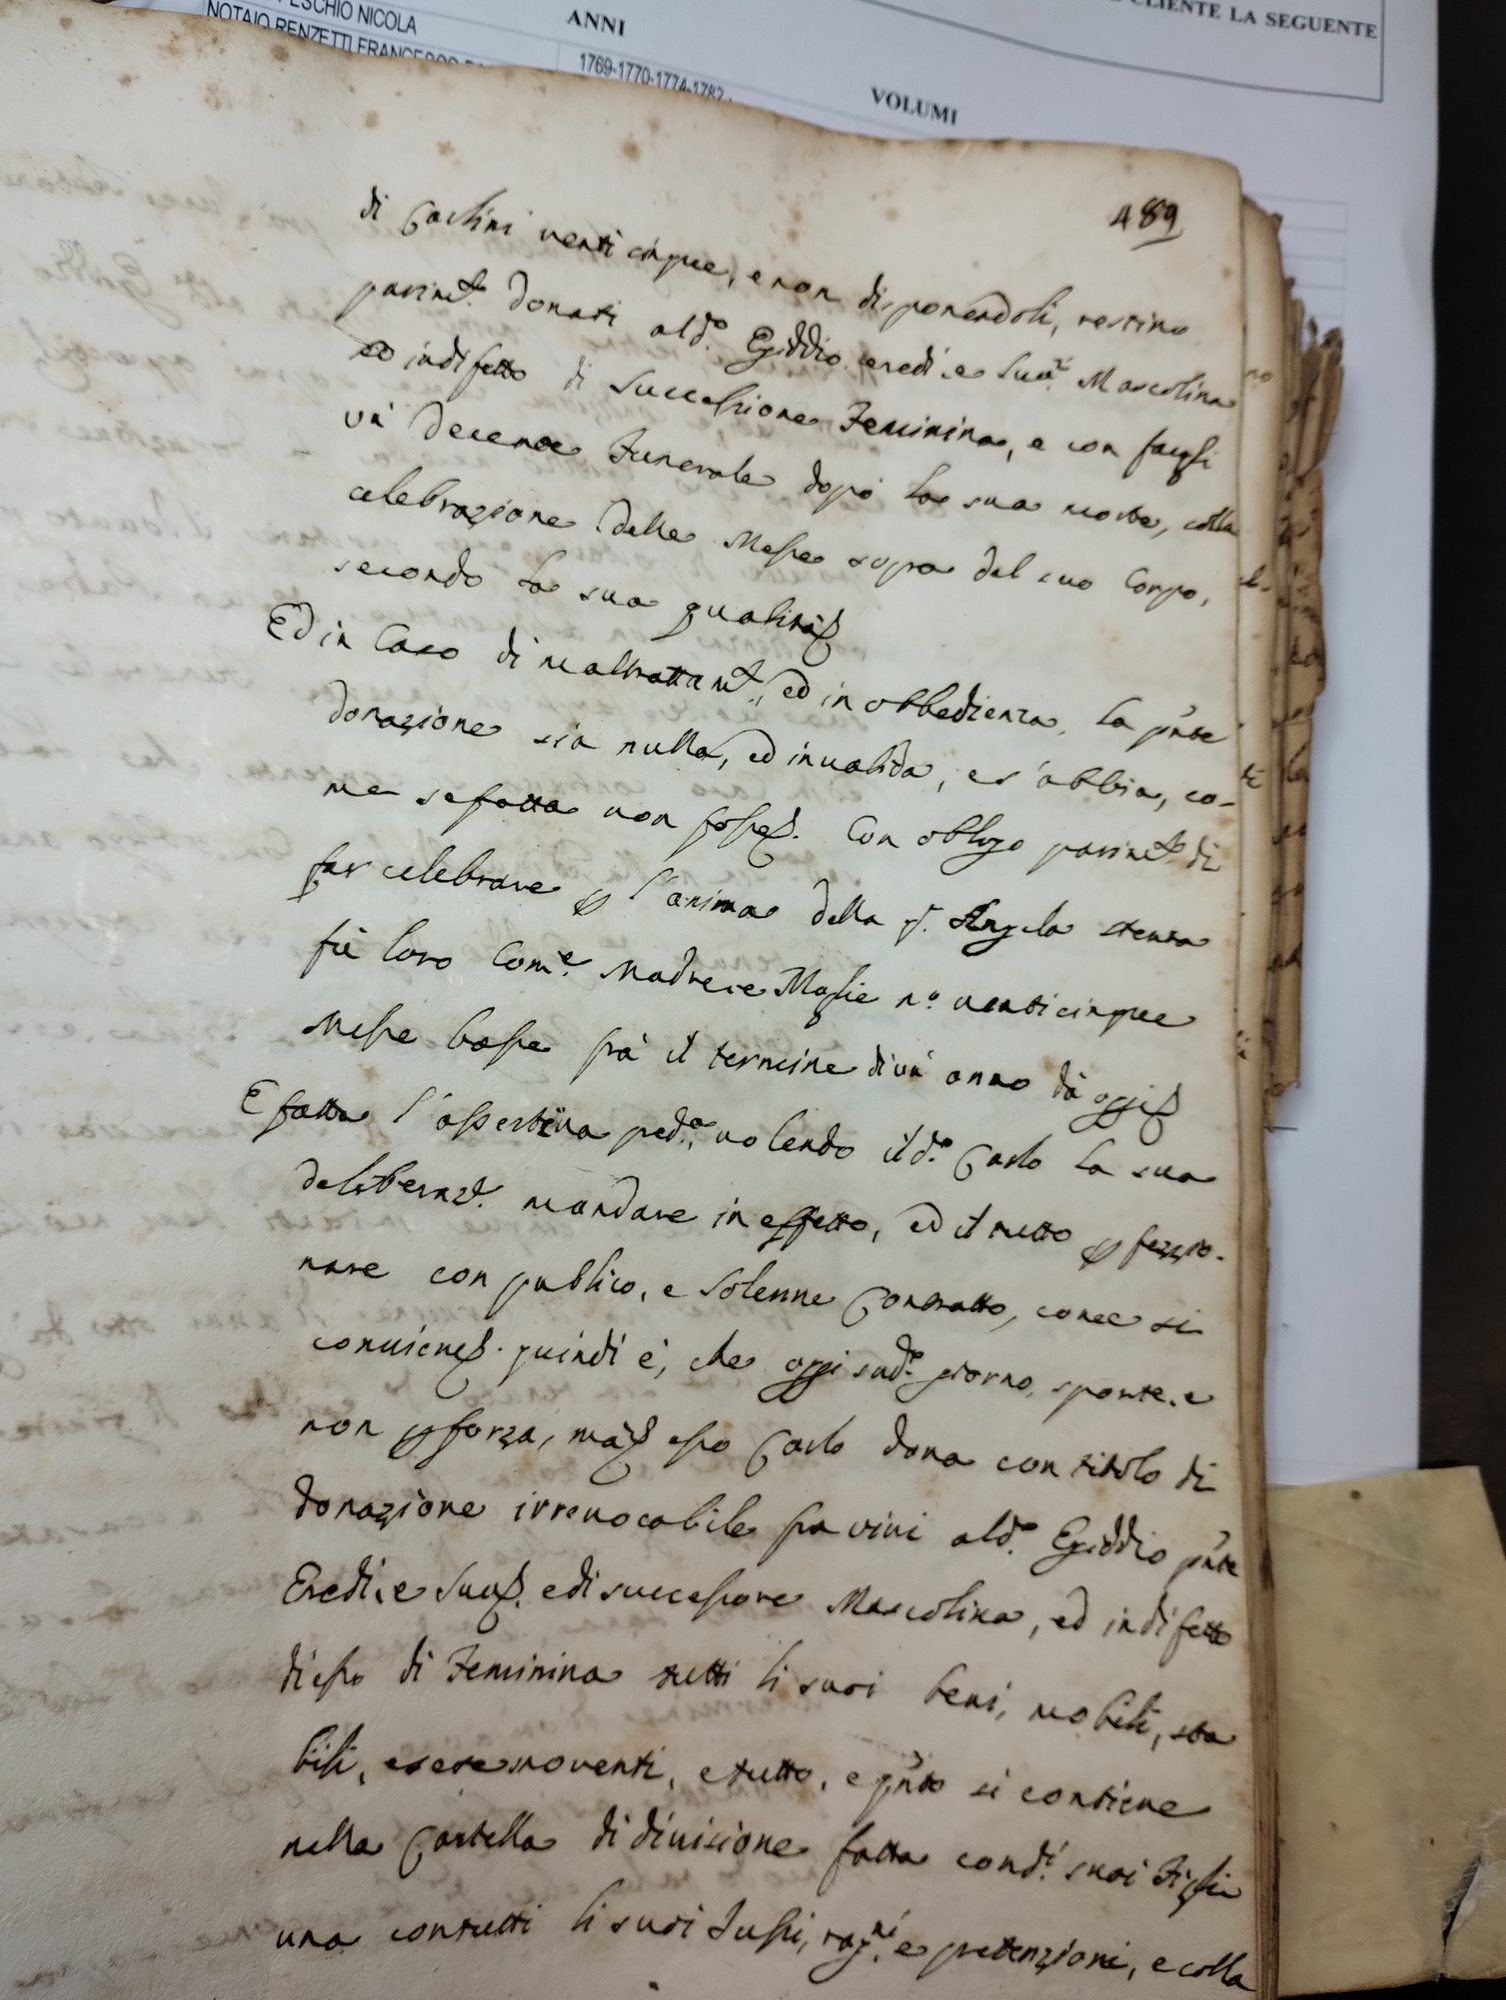 PESCHIO NICOLA
NOTAIO RENZETTI FRANCESCO
ANNI
1769-1770-1774-1782
VOLUMI
CLIENTE LA SEGUENTE
489
di Carlini venti cinque, e non disponendoli, restino
parimte. donati al do. Egiddio eredi, e Succ. Mascolina
ed in difetto di Successione Feminina, e con farsi
un' decente Funerale dopo la sua morte, colla
celebrazione delle Messe sopra del suo Corpo,
secondo la sua qualità
Ed in Caso di maltrattamt., ed in obbedienza, la pnte
donazione sia nulla, ed invalida, e s'abbia, co-
me se fatta non fosse. Con obligo parimte. di
far celebrare p l'anima della q. Angela Stenta
fù loro Come. Madre, e Moglie no. venti cinque
Messe basse frà il termine di un' anno dà oggi
E fatta l'assertiva peda., volendo il do. Carlo la sua
deliberazne. mandare in effetto, ed il tutto p fezzio-
nare con publico, e Solenne Contratto, come si
conviene. quindi è, che oggi sudo. giorno, sponte, e
non p forza, mà esso Carlo dona con titolo di
donazione irrevocabile fra vivi al do. Egiddio pnte
Eredi, e Succ. e di successione Mascolina, ed in difetto
di esso di Feminina tutti li suoi beni, mobili, sta
bili, e se se moventi, e tutto, e qnto si contiene
nella Cartella di divisione fatta con di. suoi Figli
una con tutti li suoi Jussi, ragni. e pretenzioni, e colla